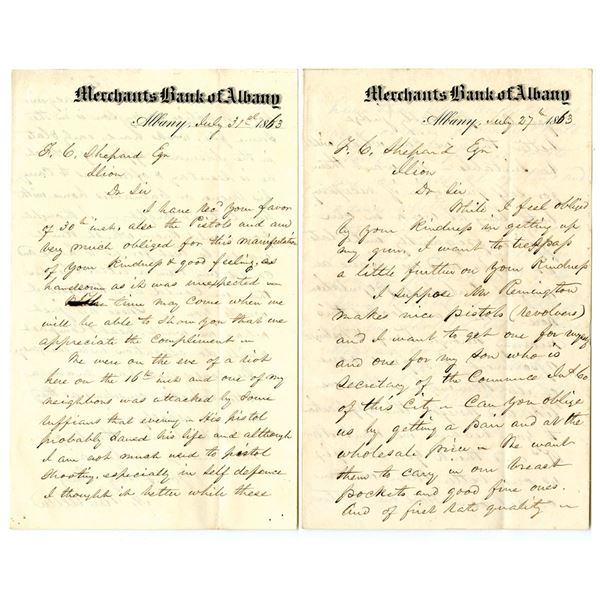 Merchants Bank of Albany
Albany, July 31st 1863
F. C. Shepard Eqr
Ilion
Dr Sir
I have Recd Your favor
of 30th inst, also the Pistols and am
very much obliged for this manifestation
of Your Kindness & good feeling, as
handsome as it was unexpected
time may come when we
will be able to Show you that we
appreciate the Compliment
We were on the eve of a riot
here on the 16th inst and one of my
neighbors was attacked by Some
ruffians that evening His pistol
probably Saved his life and although
I am not much used to pistol
Shooting, especially in Self defence
I thought it better while these
Merchants Bank of Albany
Albany, July 27th 1863
F. C. Shepard Eqr
Ilion
Dr Sir
While I feel obliged
by Your Kindness in getting up
my guns, I want to tresspass
a little further on Your Kindness
I Suppose Mr Remington
makes nice pistols (revolvers)
and I want to get one for myself
and one for my Son who is
Secretary of the Commerce Ins Co
of this City Can You oblige
us by getting a pair and at the
wholesale price We want
them to carry in our breast
pockets and good fine ones.
And of first rate quality